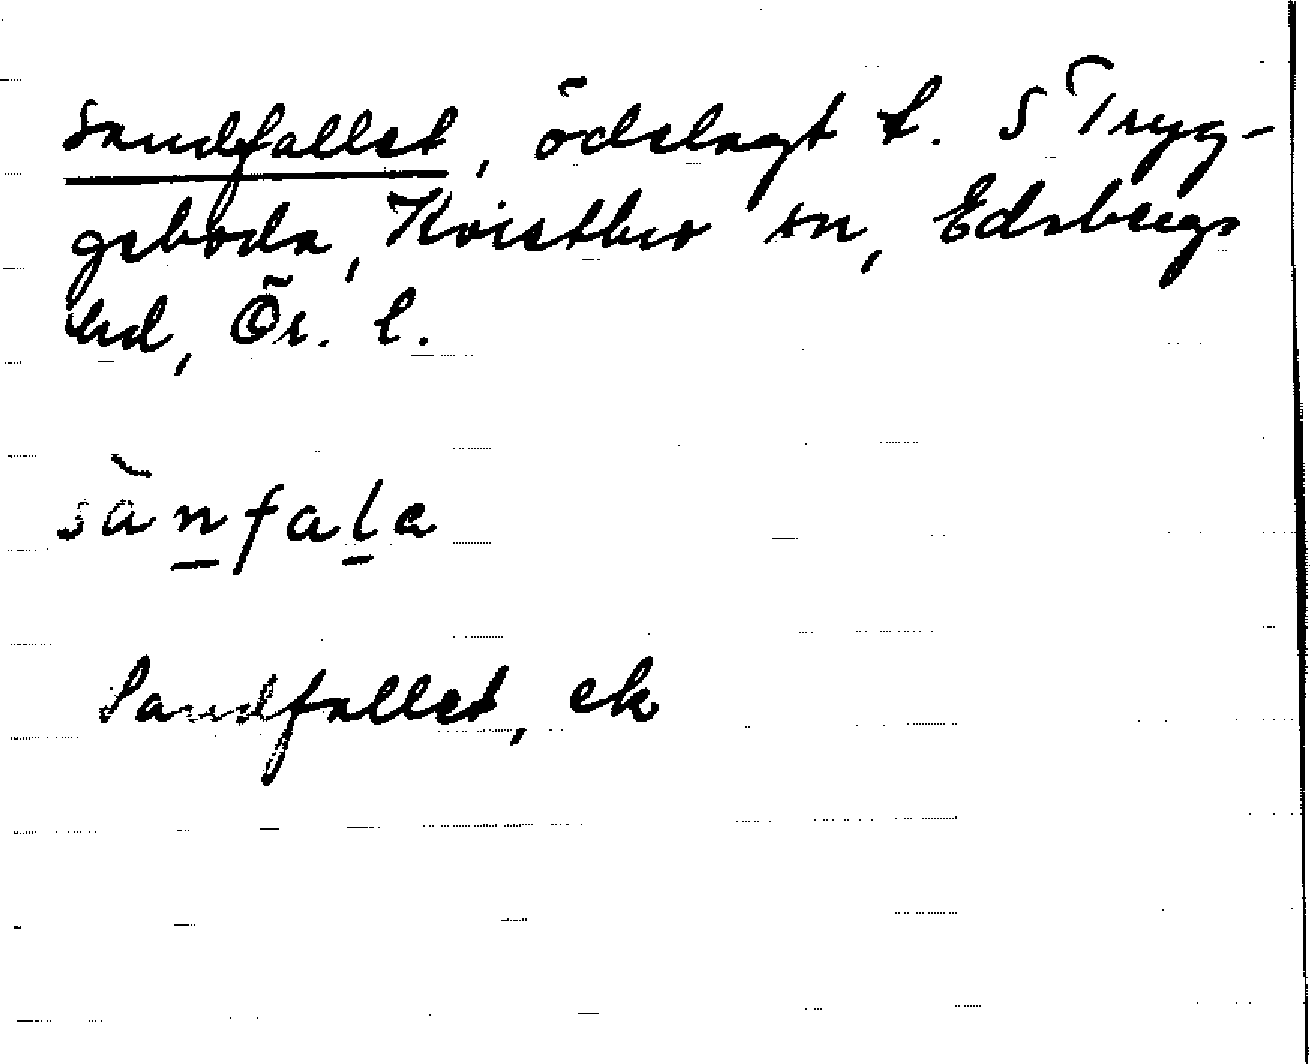 Sandfallet, ödelagt t. S Tryg-
geboda, Kvistbro sn, Edsbergs
hd, Ör. l.
sànfala
Sandfallet, ek